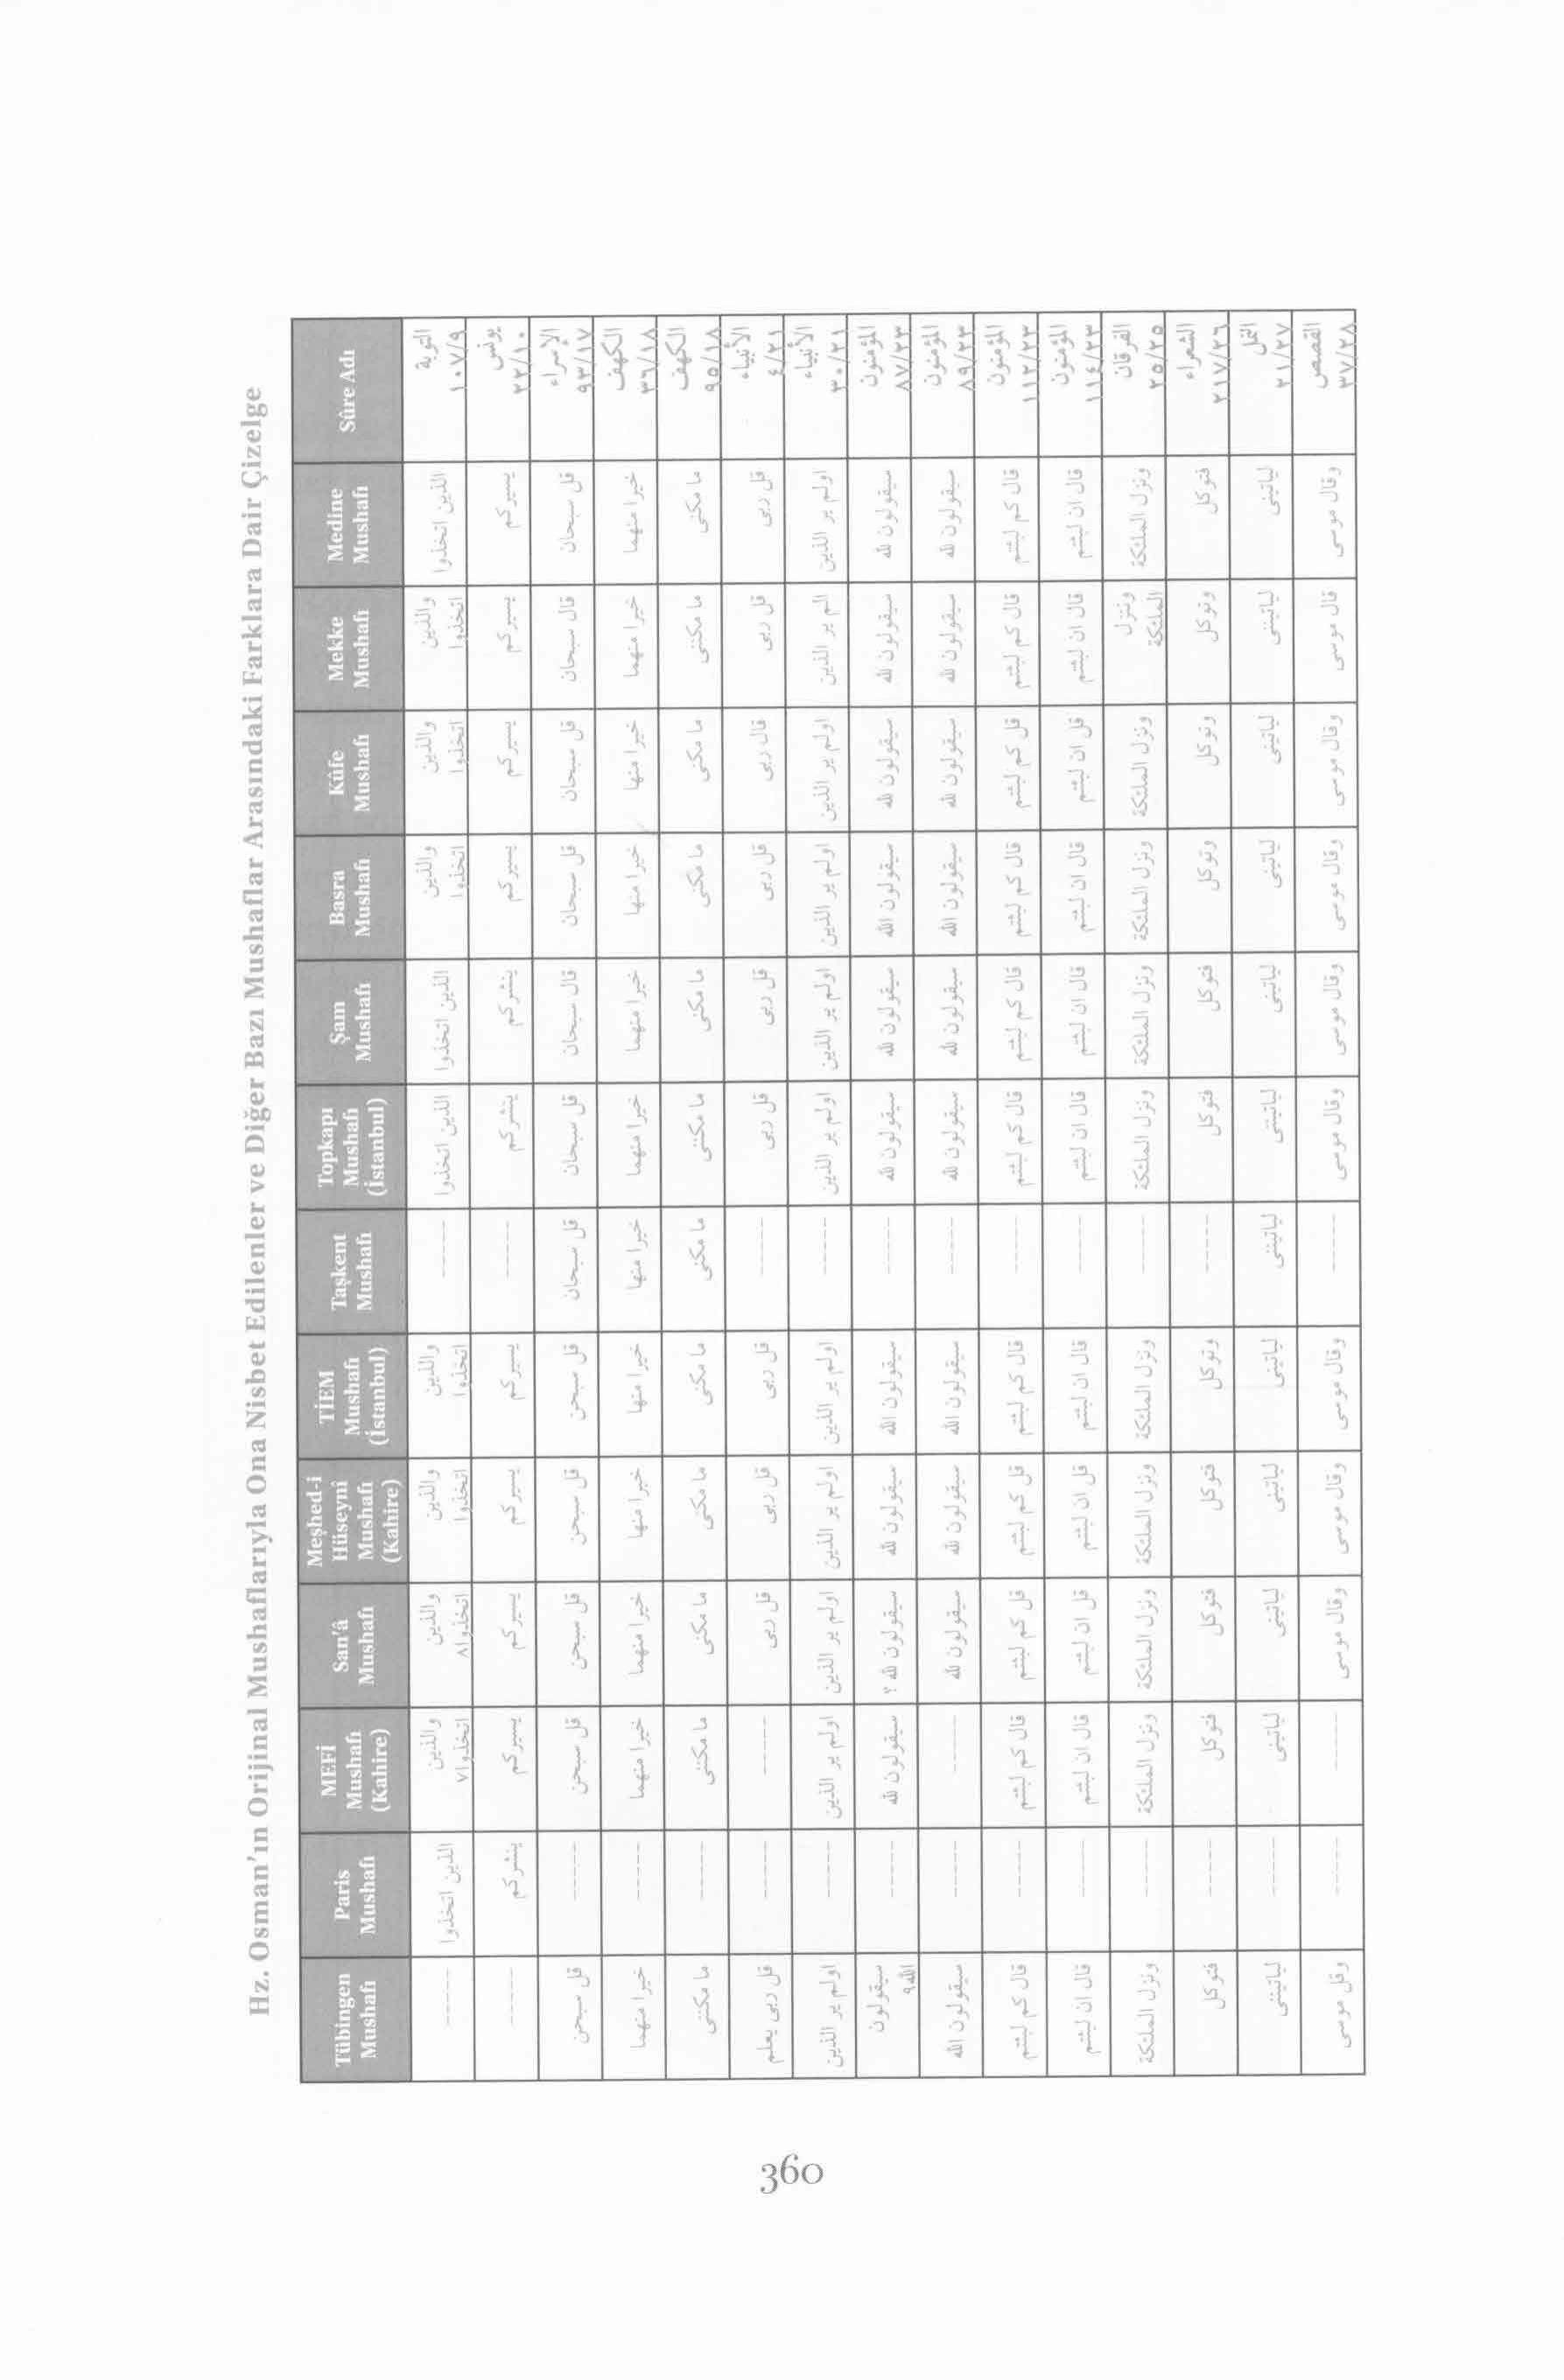 Hz. Osman'ın Orijinal Mushaflarıyla Ona Nisbet Edilenler ve Diğer Bazı Mushaflar Arasındaki Farklara Dair Çizelge
Sûre Adı | Medine Mushafı | Mekke Mushafı | Kûfe Mushafı | Basra Mushafı | Şam Mushafı | Topkapı Mushafı (İstanbul) | Taşkent Mushafı | TİEM Mushafı (İstanbul) | Meşhed-i Hüseynî Mushafı (Kahire) | San'â Mushafı | MEFİ Mushafı (Kahire) | Paris Mushafı | Tübingen Mushafı
التوبة ١٠٧/٩ | الذين اتخذوا | والذين اتخذوا | والذين اتخذوا | والذين اتخذوا | الذين اتخذوا | الذين اتخذوا | ----- | والذين اتخذوا | والذين اتخذوا | والذين اتخذوا٨ | والذين اتخذوا٧ | الذين اتخذوا | -----
يونس ٢٢/١٠ | يسيركم | يسيركم | يسيركم | يسيركم | ينشركم | ينشركم | ----- | يسيركم | يسيركم | يسيركم | يسيركم | ينشركم | -----
الإسراء ٩٣/١٧ | قل سبحان | قال سبحان | قل سبحان | قل سبحان | قال سبحان | قل سبحان | قل سبحان | قل سبحن | قل سبحن | قل سبحن | قل سبحن | ----- | قل سبحن
الكهف ٣٦/١٨ | خيرا منهما | خيرا منهما | خيرا منها | خيرا منها | خيرا منهما | خيرا منهما | خيرا منها | خيرا منها | خيرا منها | خيرا منهما | خيرا منهما | ----- | خيرا منهما
الكهف ٩٥/١٨ | ما مكنى | ما مكننى | ما مكنى | ما مكنى | ما مكنى | ما مكننى | ما مكنى | ما مكنى | ما مكنى | ما مكنى | ما مكننى | ----- | ما مكننى
الأنبياء ٤/٢١ | قل ربى | قل ربى | قال ربى | قل ربى | قل ربى | قل ربى | ----- | قل ربى | قل ربى | قل ربى | ----- | ----- | قل ربى يعلم
الأنبياء ٣٠/٢١ | اولم ير الذين | الم ير الذين | اولم ير الذين | اولم ير الذين | اولم ير الذين | اولم ير الذين | ----- | اولم ير الذين | اولم ير الذين | اولم ير الذين | اولم ير الذين | ----- | اولم ير الذين
المؤمنون ٨٧/٢٣ | سيقولون لله | سيقولون لله | سيقولون لله | سيقولون الله | سيقولون لله | سيقولون لله | ----- | سيقولون الله | سيقولون لله | سيقولون لله ؟ | سيقولون لله | ----- | سيقولون الله٩
المؤمنون ٨٩/٢٣ | سيقولون لله | سيقولون لله | سيقولون لله | سيقولون الله | سيقولون لله | سيقولون لله | ----- | سيقولون الله | سيقولون لله | سيقولون لله | ----- | ----- | سيقولون الله
المؤمنون ١١٢/٢٣ | قال كم لبثتم | قال كم لبثتم | قل كم لبثتم | قال كم لبثتم | قال كم لبثتم | قال كم لبثتم | ----- | قال كم لبثتم | قل كم لبثتم | قل كم لبثتم | قال كم لبثتم | ----- | قال كم لبثتم
المؤمنون ١١٤/٢٣ | قال ان لبثتم | قال ان لبثتم | قل ان لبثتم | قال ان لبثتم | قال ان لبثتم | قال ان لبثتم | ----- | قال ان لبثتم | قل ان لبثتم | قل ان لبثتم | قال ان لبثتم | ----- | قال ان لبثتم
الفرقان ٢٥/٢٥ | ونزل الملئكة | وننزل الملئكة | ونزل الملئكة | ونزل الملئكة | ونزل الملئكة | ونزل الملئكة | ----- | ونزل الملئكة | ونزل الملئكة | ونزل الملئكة | ونزل الملئكة | ----- | ونزل الملئكة
الشعراء ٢١٧/٢٦ | فتوكل | وتوكل | وتوكل | وتوكل | فتوكل | فتوكل | ----- | وتوكل | فتوكل | فتوكل | فتوكل | ----- | فتوكل
النمل ٢١/٢٧ | لياتينى | لياتيننى | لياتينى | لياتينى | لياتينى | لياتيننى | لياتيننى | لياتينى | لياتينى | لياتينى | لياتينى | ----- | لياتيننى
القصص ٣٧/٢٨ | وقال موسى | قال موسى | وقال موسى | وقال موسى | وقال موسى | وقال موسى | ----- | وقال موسى | وقال موسى | وقال موسى | ----- | ----- | وقل موسى
360